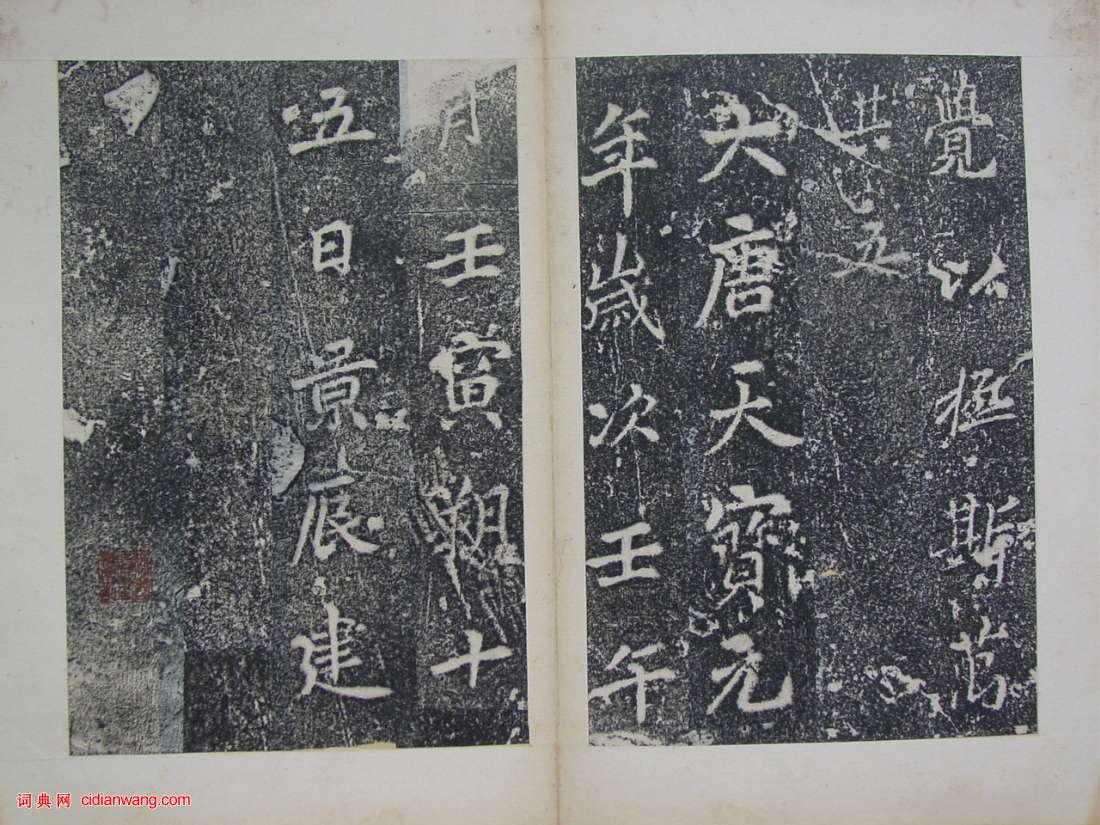 覺極斯
其五
大唐天寶元
年歲次壬午
月壬寅朔十
五日景辰建
词典网 cidianwang.com